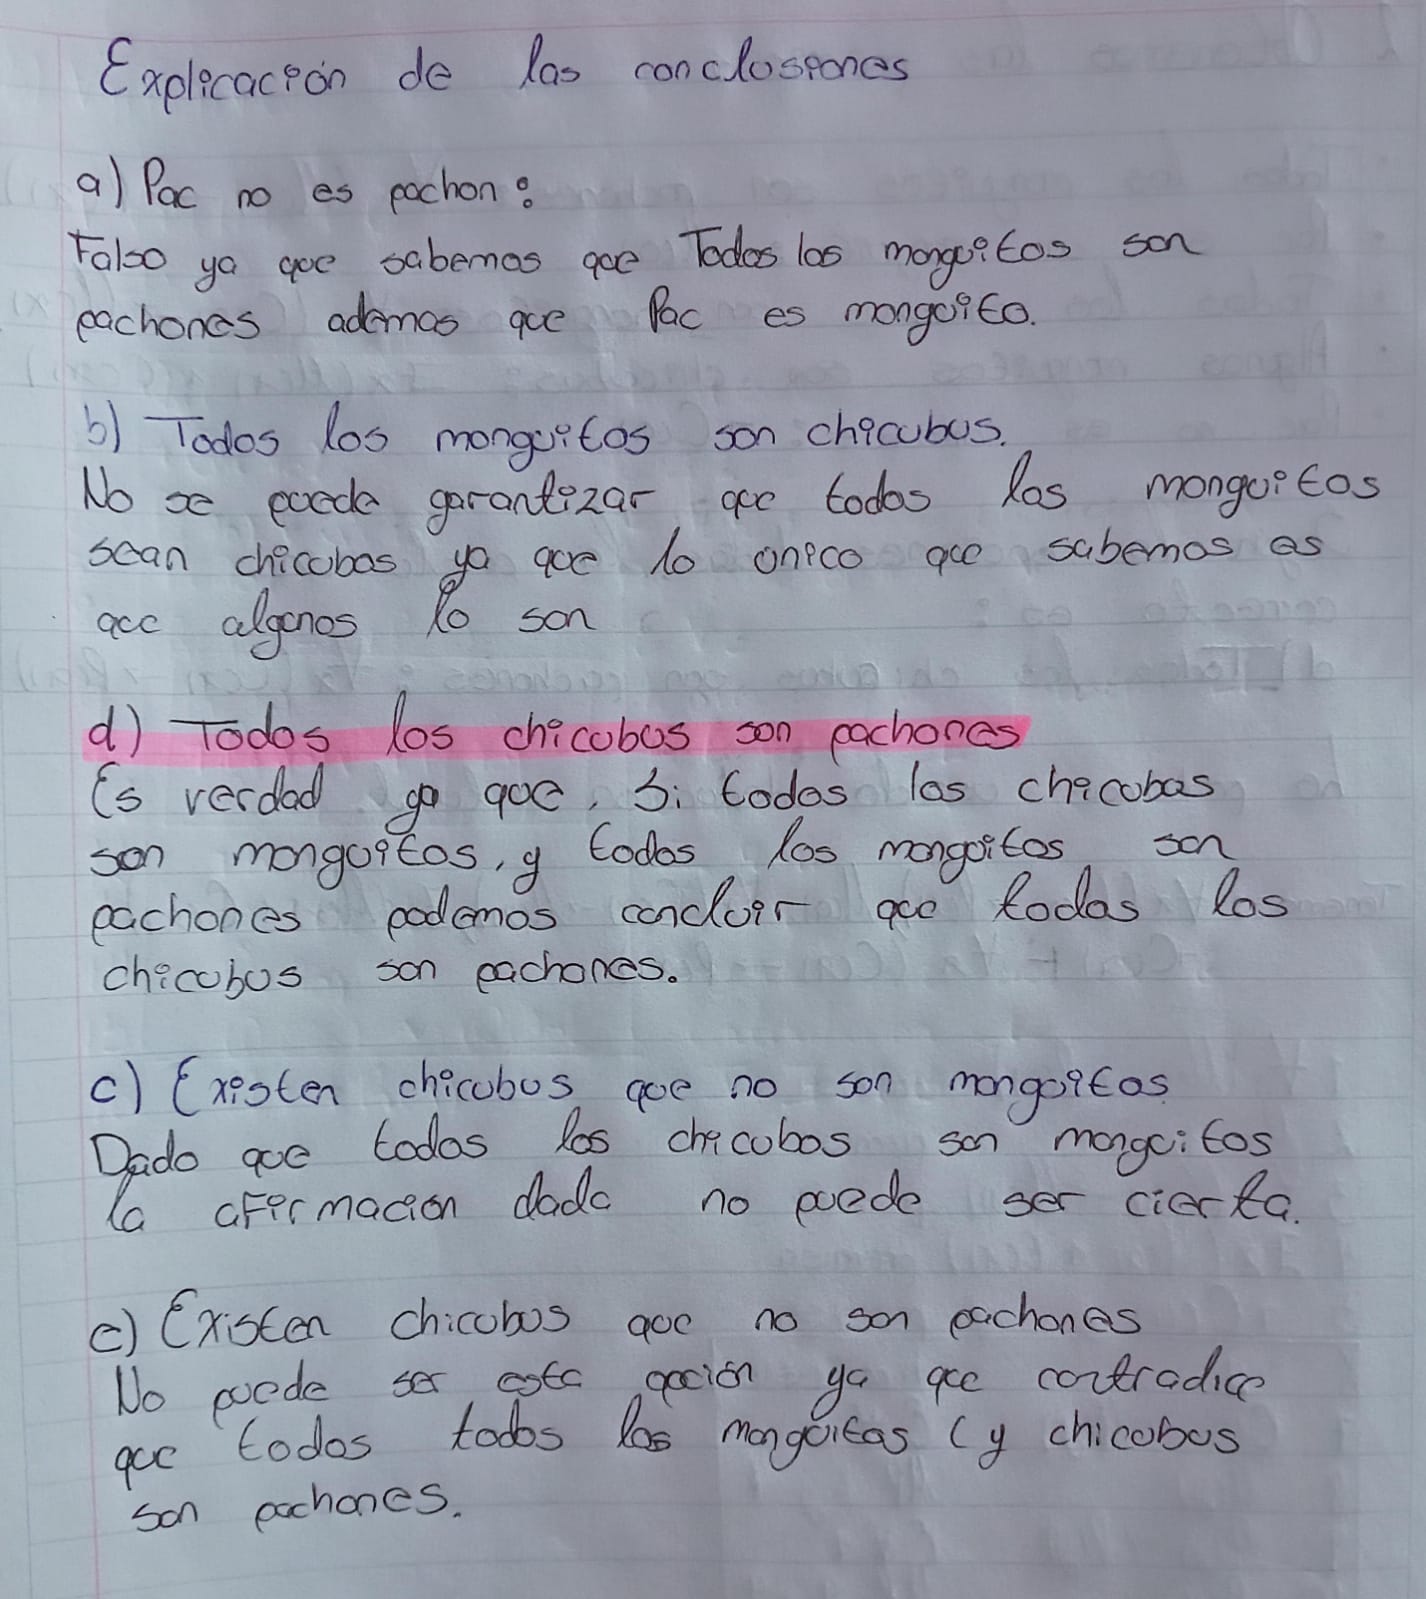 Explicación de las conclusiones
a) Pac no es pachon:
Falso ya que sabemos que Todos los monguitos son
pachones ademas que Pac es monguito.
b) Todos los monguitos son chicubus.
No se puede garantizar que todos los monguitos
sean chicubos ya que lo unico que sabemos es
que algunos lo son
d) Todos los chicubus son pachones
Es verdad ya que, Si todos los chicubos
son monguitos, y todos los monguitos son
pachones podemos concluir que todos los
chicubus son pachones.
c) Existen chicubus que no son monguitos
Dado que todos los chicubos son monguitos
la afirmacion dada no puede ser cierta.
e) Existen chicubos que no son pachones
No puede ser esta opción ya que contradice
que todos todos los monguitos (y chicobus
son pachones.